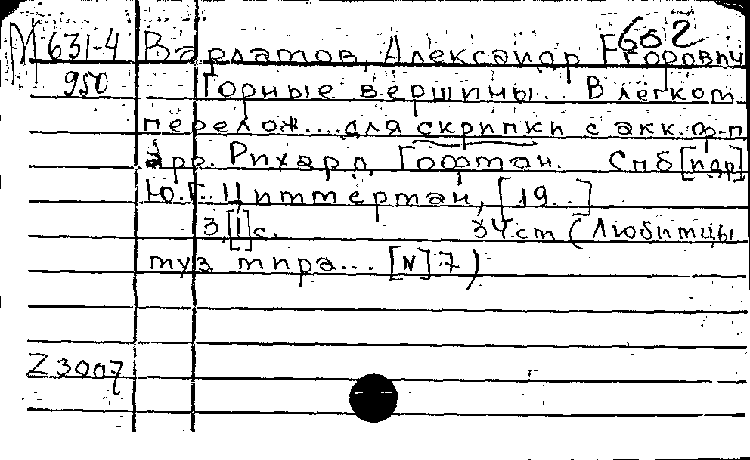 602
М 631-4 Варламов, Александр Егорович
950 Горные вершины... В легком
перелож.... для скрипки с акк. ф-п
Арр. Рихард Гофман. Спб [изд]
Ю.Г. Циммерман, [19..]
3,[1] с. 34 cm (Любимцы
муз мира... [N] 7)
Z 3007